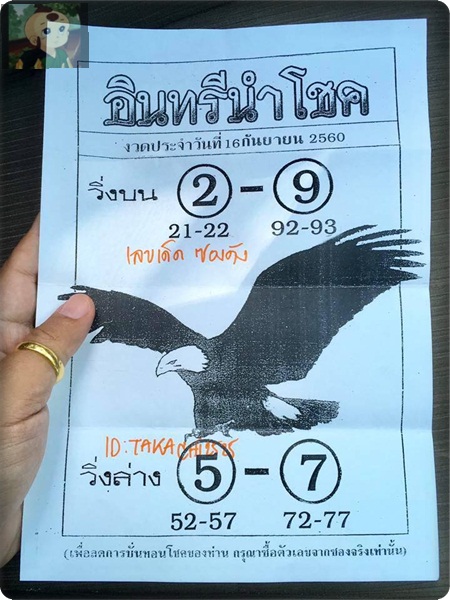 อินทรีนำโชค
งวดประจำวันที่ 16 กันยายน 2560
วิ่งบน 2 - 9
21-22 92-93
เลขเด็ด ซองดัง
วิ่งล่าง 5 - 7
52-57 72-77
(เพื่อลดการบั่นทอนโชคของท่าน กรุณาซื้อตัวเลขจากซองจริงเท่านั้น)